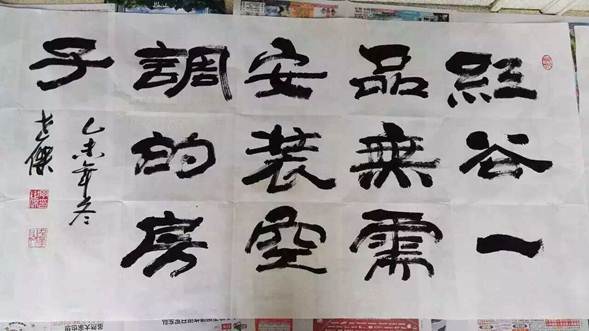 紅谷一
品無需
安装空
調的房
子
乙未年冬